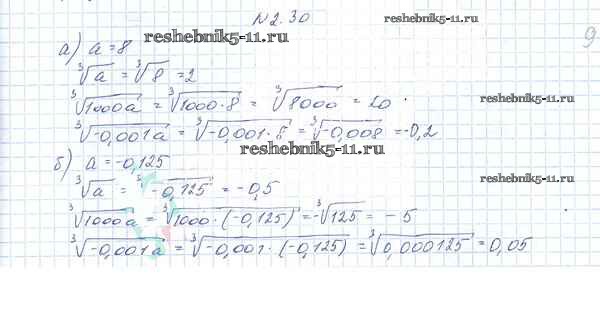 N 2.30
reshebnik5-11.ru
а) a = 8
reshebnik5-11.ru
9
∛a = ∛8 = 2
∛1000a = ∛1000·8 = ∛8000 = 20
reshebnik5-11.ru
∛-0,001a = ∛-0,001·8 = ∛-0,008 = -0,2
reshebnik5-11.ru
б) a = -0,125
∛a = ∛-0,125 = -0,5
reshebnik5-11.ru
∛1000a = ∛1000·(-0,125) = -∛125 = -5
∛-0,001a = ∛-0,001·(-0,125) = ∛0,000125 = 0,05